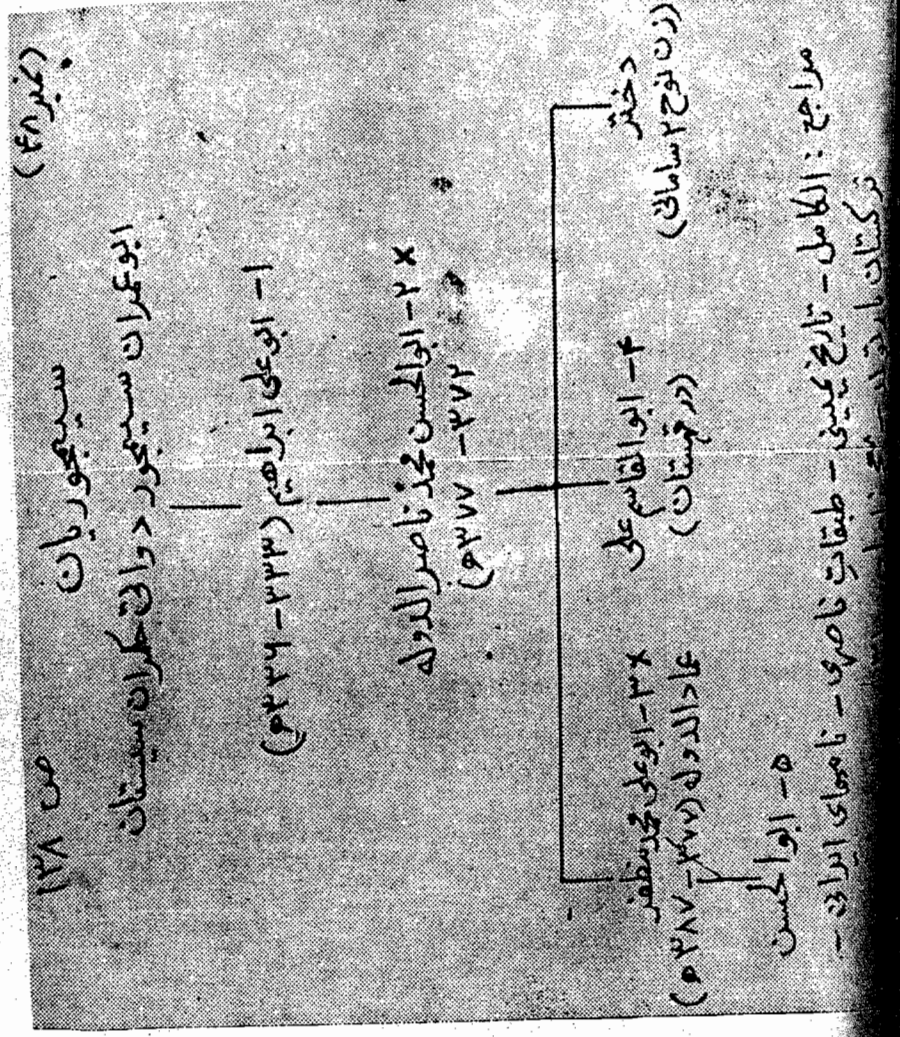 ص ۱۳۸
سیمجوریان
(نمبر ۴۸)
ابو عمران سیمجور دواتی حکمران سیستان
۱- ابو علی ابراهیم (۳۳۳-۳۳۶ه)
×۲- ابوالحسن محمد ناصرالدوله
۳۷۲-۳۷۷ه)
×۳- ابو علی محمد مظفر
عمادالدوله (۳۷۷-۳۸۷ه)
۴- ابوالقاسم علی
(در قهستان)
دختر
(زن نوح ۲ سامانی)
۵- ابوالحسن
مراجع : الکامل - تاریخ یمینی - طبقات ناصری - نامهای ایرانی -
ترکستان